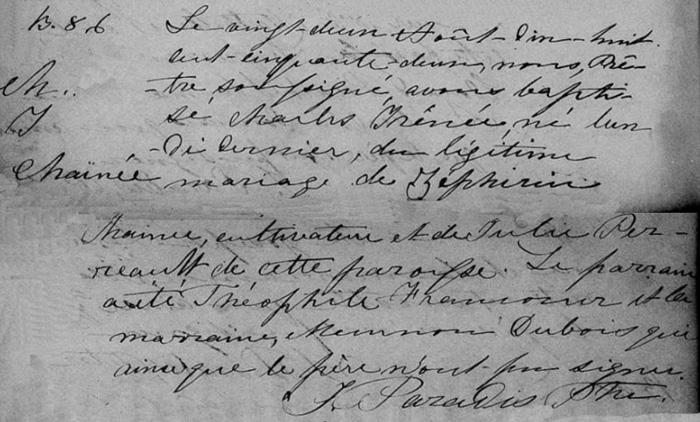 B. 86
Ch..
I
Chainée
Le vingt-deux Août Dix-huit
cent-cinquante-deux, nous, Prê-
-tre soussigné, avons bapti-
sé, Charles Irénée, né lun
-di dernier, du légitime
mariage de Zéphirin
Chainée, cultivateur et de Julie Per-
reault de cette paroisse. Le parrain
a été Théophile Francoeur et la
marraine, Dubois qui
ainsi que le père n'ont pu signer.
J. Paradis Ptre.